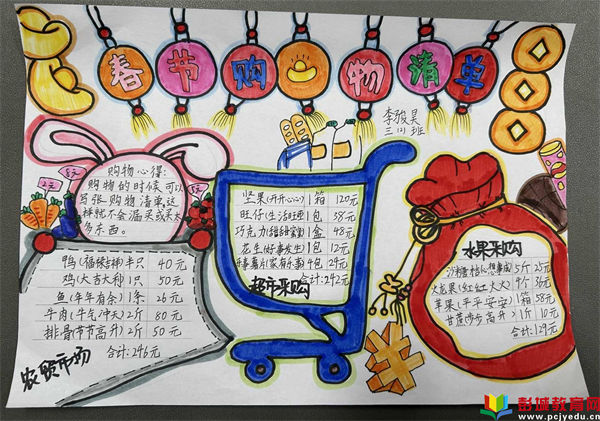 春节购物清单
李骏昊
三(1)班
购物心得:
购物的时候可以
写张购物清单这
样就不会漏买或买太
多东西。
鸭(福禄吉祥)半只 40元
鸡(大吉大利)1只 50元
鱼(年年有余)1条 26元
牛肉(牛气冲天)2斤 80元
排骨(节节高升)2斤 50元
合计:246元
农贸市场
坚果(开开心心)1箱 120元
旺仔(生活旺旺)1包 38元
巧克力(甜甜蜜蜜)1盒 48元
花生(好事发生)1包 12元
4包 24元
合计:242元
超市采购
水果采购
沙糖桔(心想事成)5斤 25元
火龙果(红红火火)4个 36元
苹果(平平安安)1箱 58元
甘蔗(步步高升)1斤 10元
合计:129元
彭城教育网
www.pcjyedu.cn